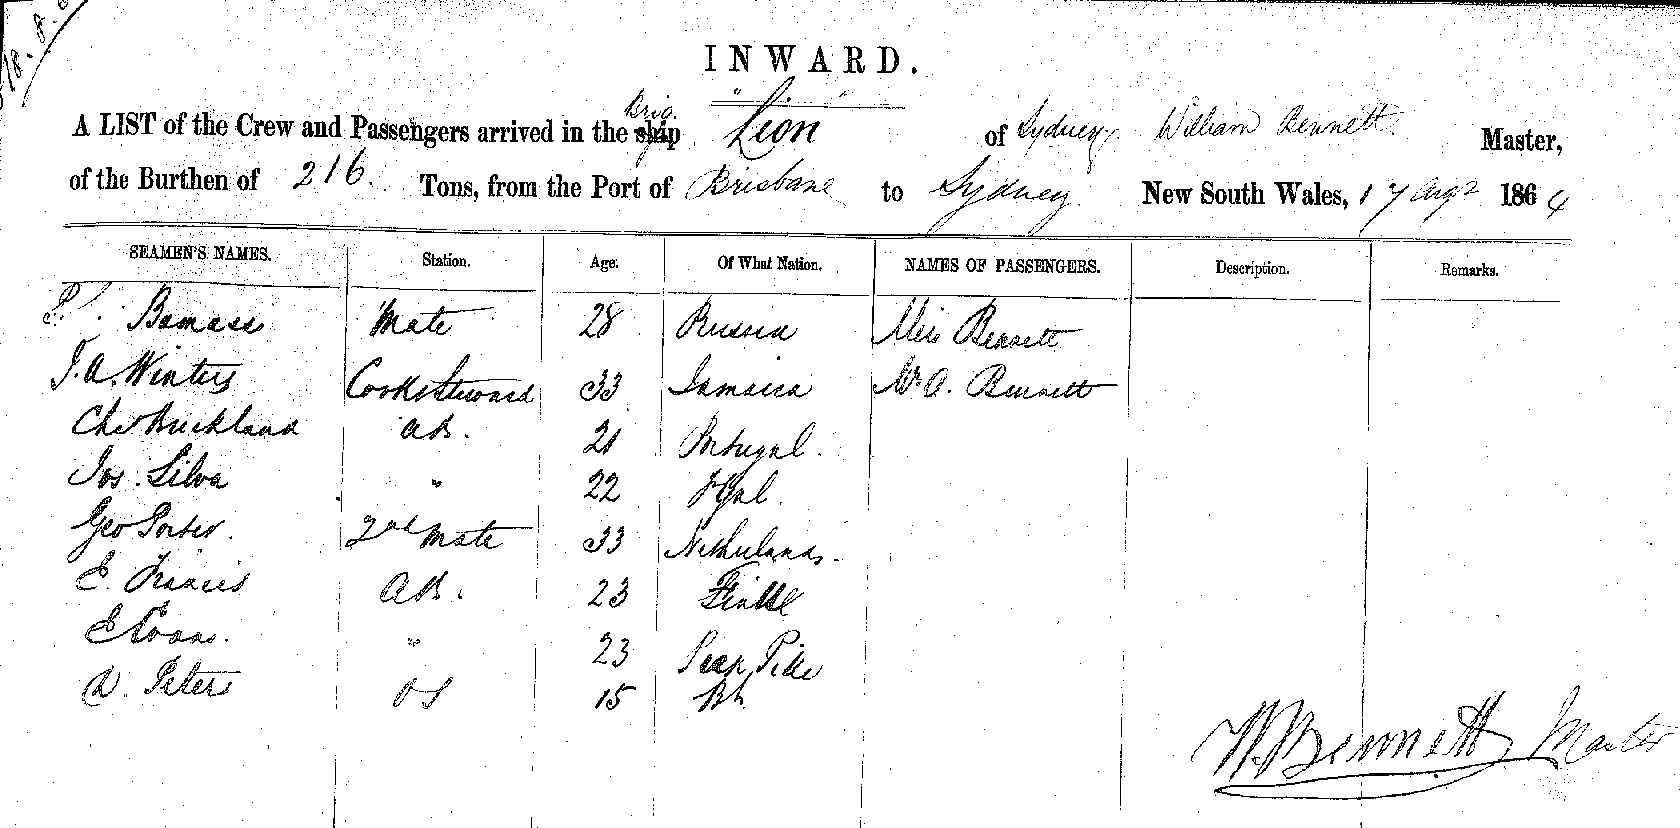 18. 8. 6
INWARD.
"Lion"
A LIST of the Crew and Passengers arrived in the ship Brig Lion of Sydney William Bennett Master,
of the Burthen of 216 Tons, from the Port of Brisbane to Sydney New South Wales, 17 Augt 1864
SEAMEN'S NAMES. Station. Age. Of What Nation. NAMES OF PASSENGERS. Description. Remarks.
Mate 28 Russia Miss Bennett
J. A. Winters Cook & Steward 33 Jamaica Mr A. Bennett
Chs Buckland AB. 21 Portugal.
Jos. Silva " 22
Geo Porter. 2nd Mate 33 Netherlands.
E. Francis AB. 23
E Evans. " 23
Peter OS 15
W. Bennett Master